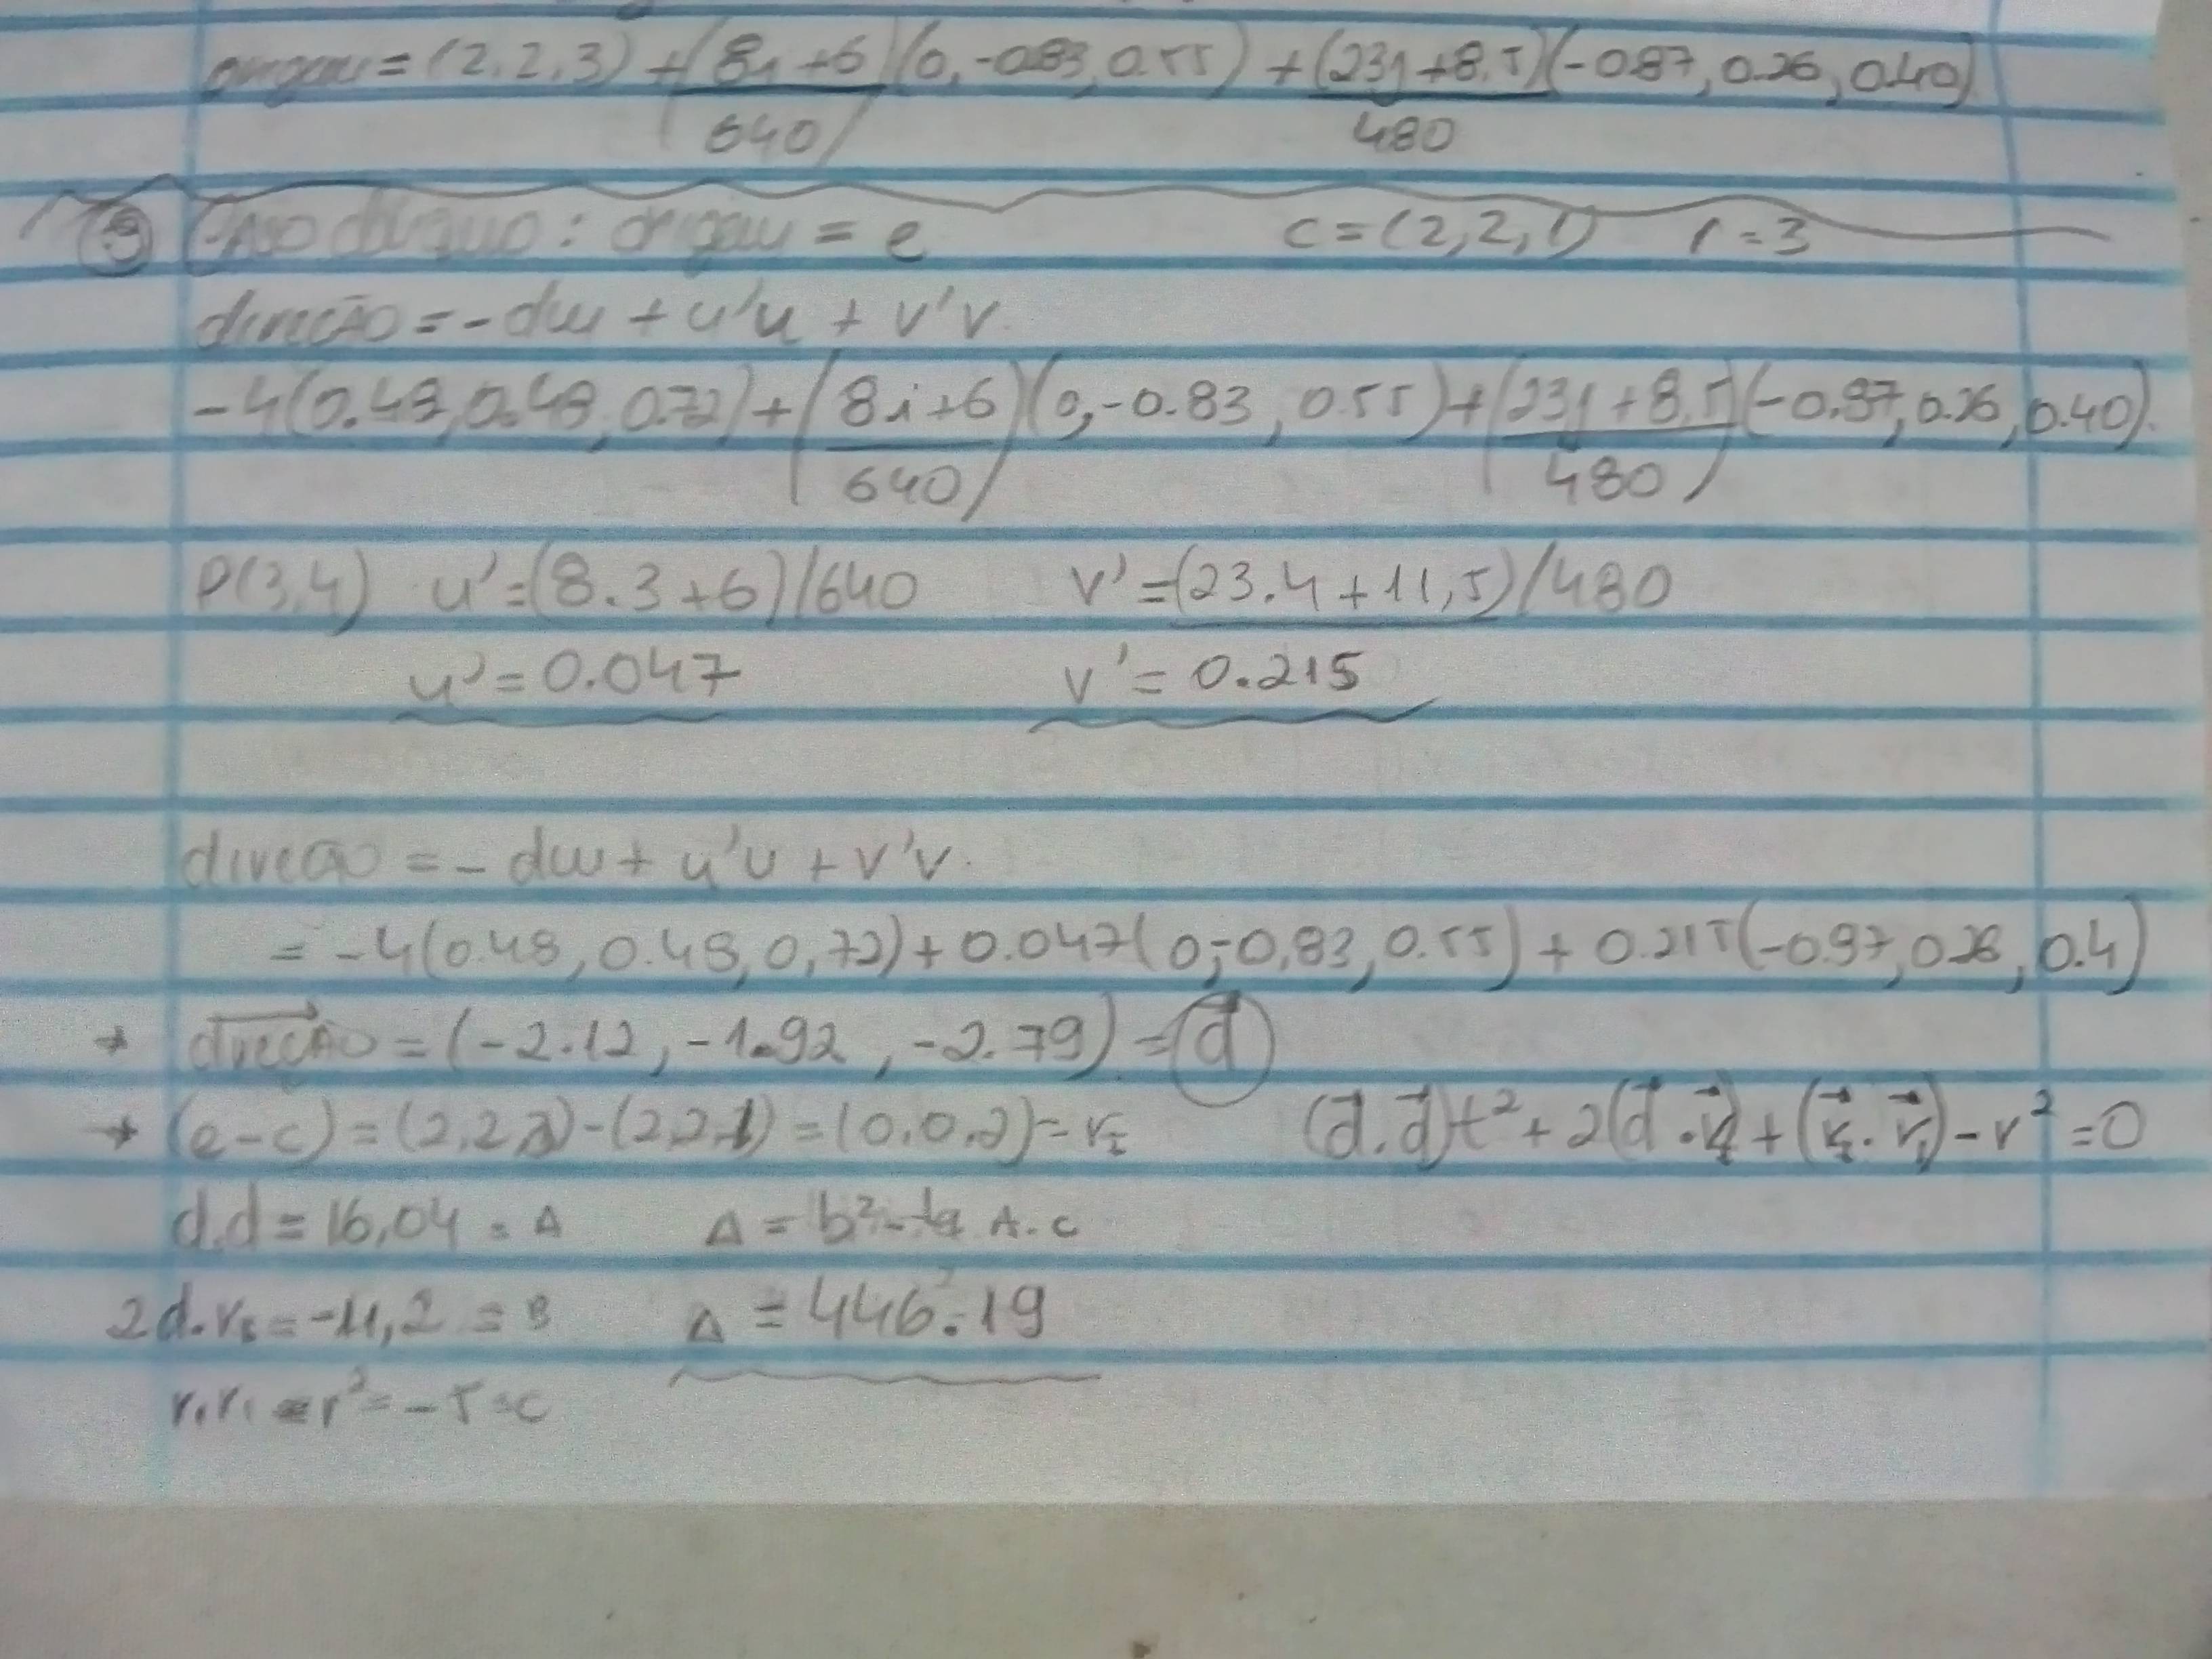 origem = (2,2,3) + (8i+6)(0,-0.83,0.55) + (23j+8.5)(-0.87,0.26,0.40)
640 480
: origem = e c = (2,2,1) r = 3
direção = -dw + u'u + v'v
-4(0.48,0.48,0.72) + (8i+6)(0,-0.83,0.55) + (23j+8.5)(-0.87,0.26,0.40).
640 480
P(3,4) u' = (8.3+6)/640 v' = (23.4+11,5)/480
u' = 0.047 v' = 0.215
direção = -dw + u'u + v'v.
= -4(0.48, 0.48, 0,72) + 0.047(0,-0,83, 0.55) + 0.215(-0.97, 0.26, 0.4)
→ direção = (-2.12, -1.92, -2.79) = d
→ (e-c) = (2,2,3)-(2,2,1) = (0,0,2) = r₁ (d.d)t² + 2(d.r₁) + (r₁.r₁) - r² = 0
d.d = 16,04 = A Δ = b² - 4 A.c
2d.r₁ = -11,2 = B Δ = 446.19
r₁r₁ - r² = -5 = c